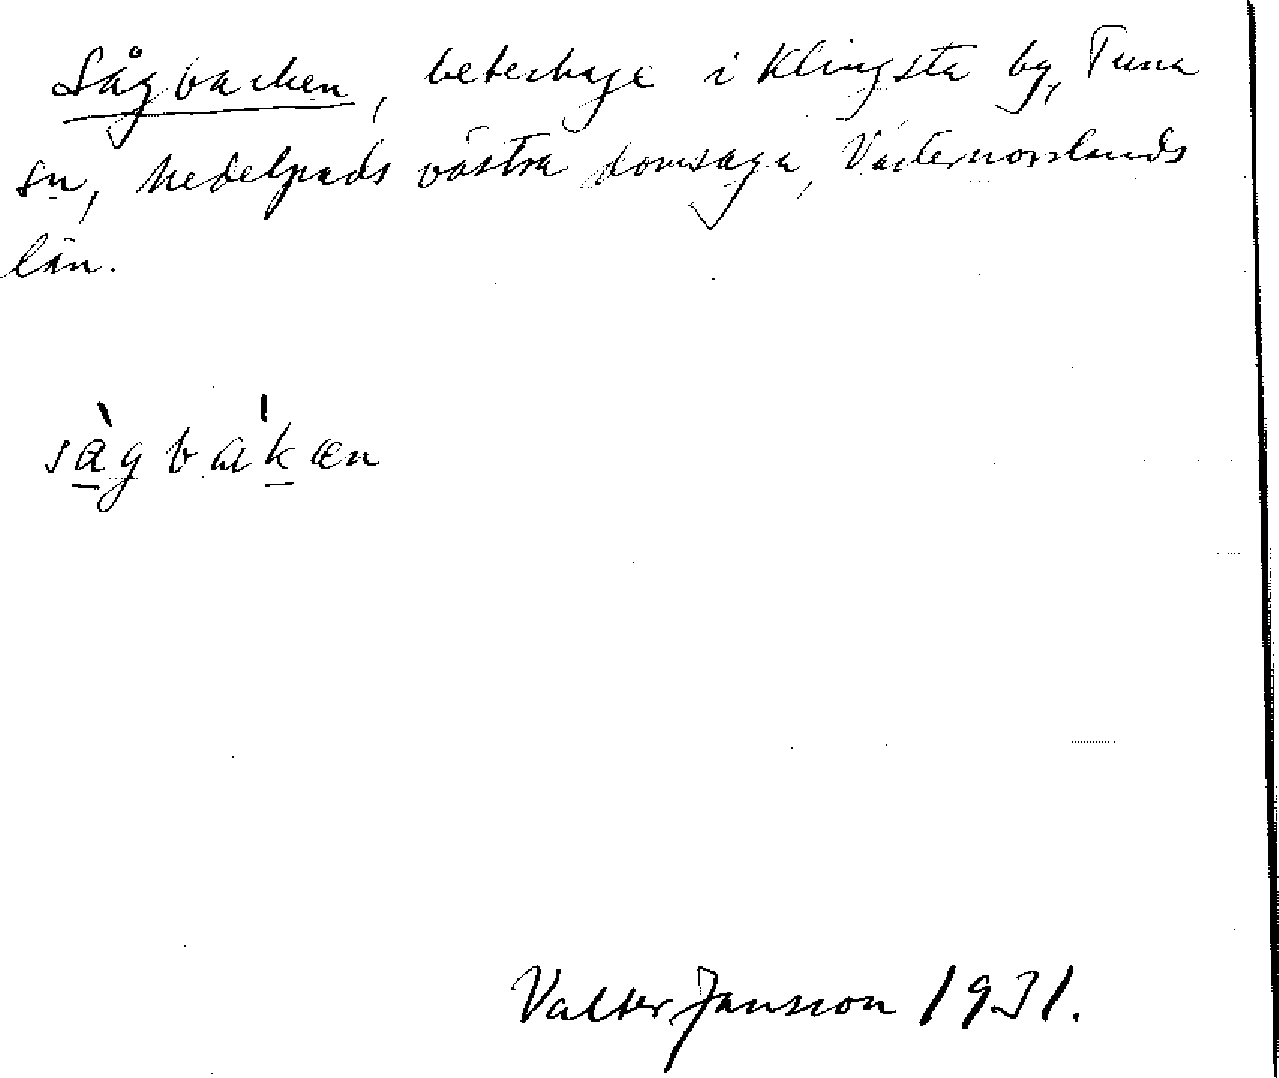 Sågbacken, beteshage i Klingsta by, Tuna
sn, Medelpads västra domsaga, Västernorrlands
län.
sàgbákæn
Valter Jansson 1931.